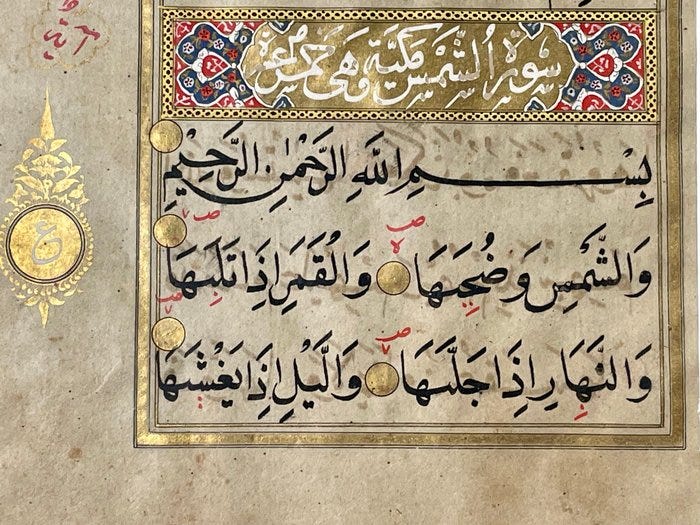 سورة الشمس مكية وهى خمس عشرة
بِسْمِ اللَّهِ الرَّحْمٰنِ الرَّحِيمِ
وَالشَّمْسِ وَضُحٰيهَا وَالْقَمَرِ اِذَا تَلٰيهَا
وَالنَّهَارِ اِذَا جَلّٰيهَا وَالَّيْلِ اِذَا يَغْشٰيهَا
ع